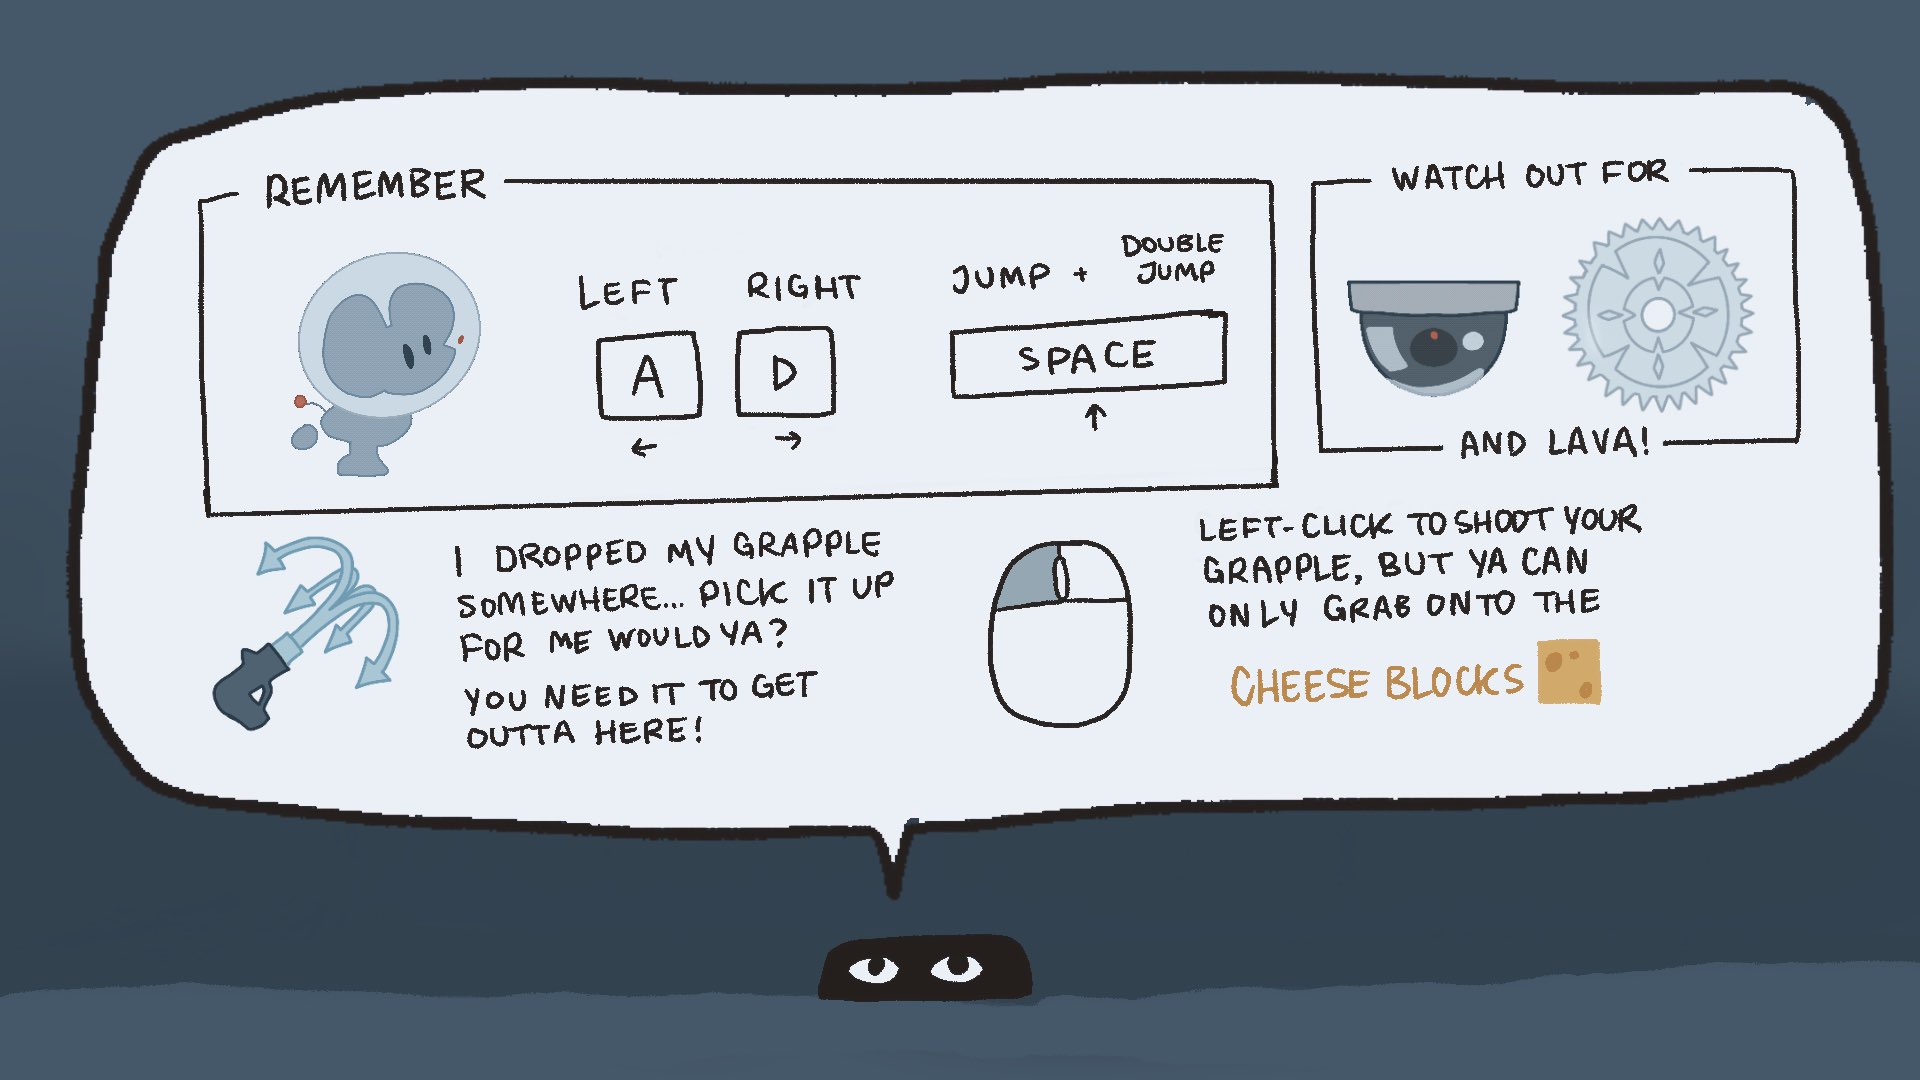 REMEMBER
LEFT
RIGHT
JUMP + DOUBLE JUMP
A
D
SPACE
WATCH OUT FOR
AND LAVA!
I DROPPED MY GRAPPLE
SOMEWHERE... PICK IT UP
FOR ME WOULD YA?
YOU NEED IT TO GET
OUTTA HERE!
LEFT-CLICK TO SHOOT YOUR
GRAPPLE, BUT YA CAN
ONLY GRAB ONTO THE
CHEESE BLOCKS